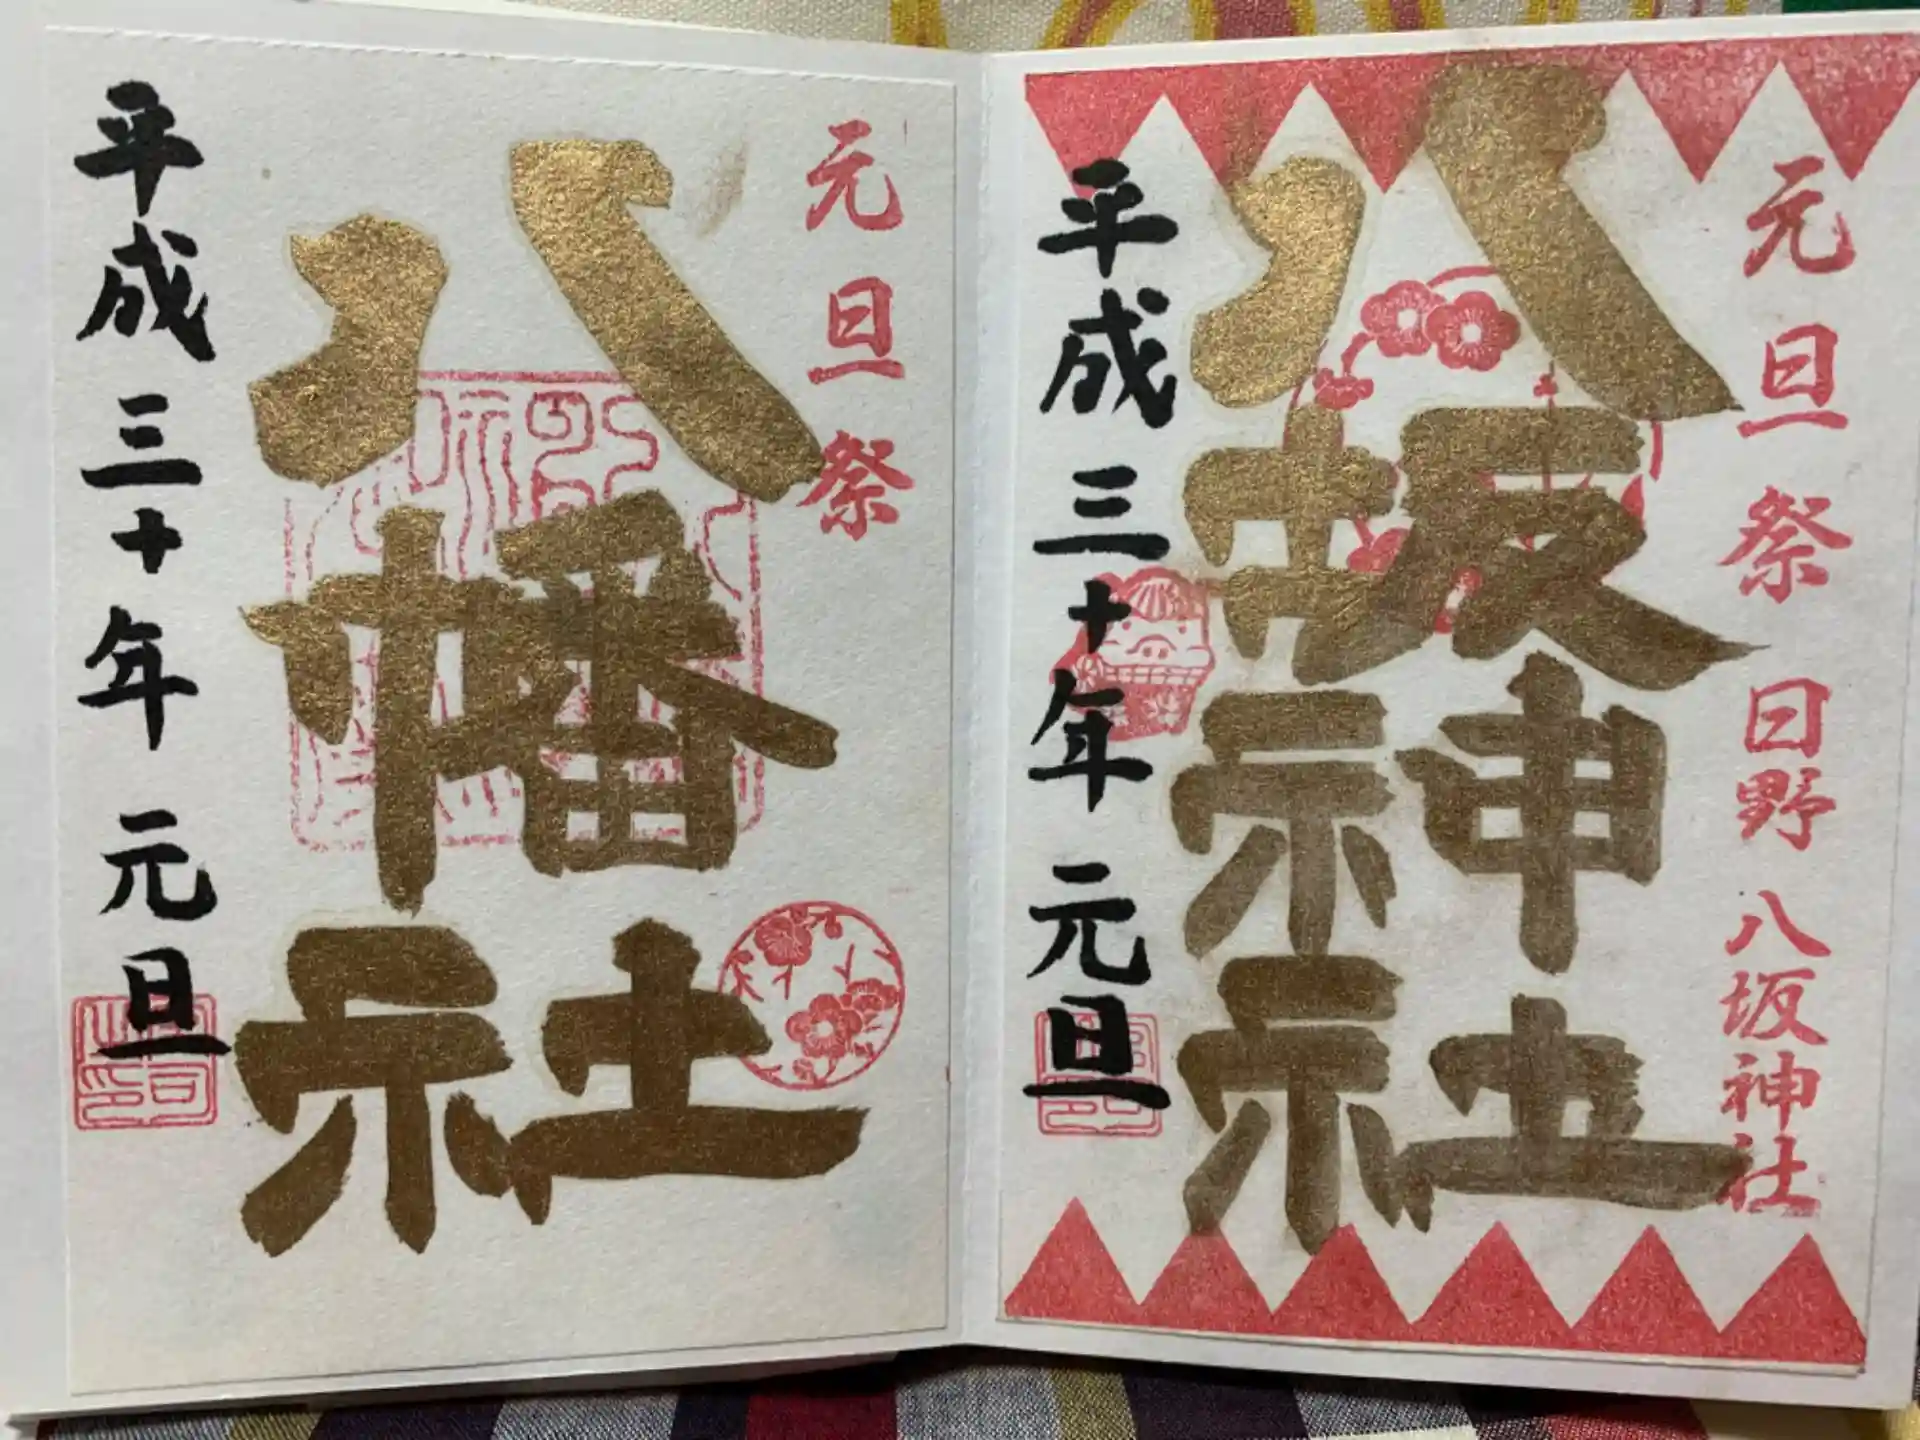 元旦祭 日野 八坂神社
八坂神社
平成三十年 元旦
元旦祭
八幡社
平成三十年 元旦